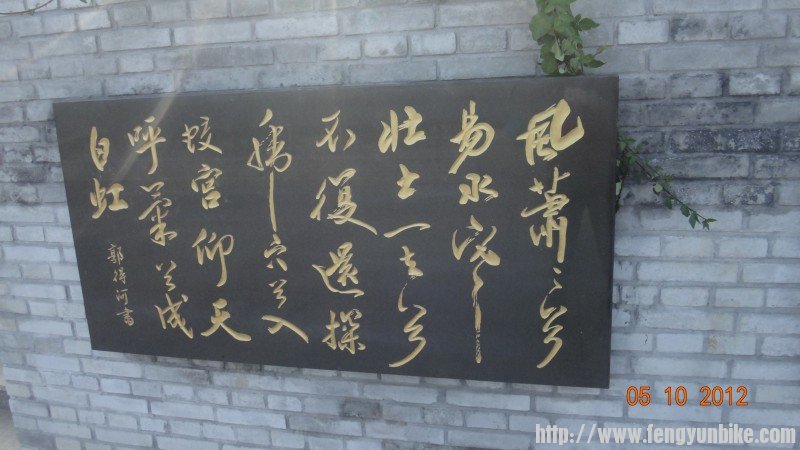 風蕭々兮
易水寒
壯士一去兮
不復還探
虎穴兮入
蛟宮仰天
呼氣兮成
白虹
郭得河書
05 10 2012
http://www.fengyunbike.com/